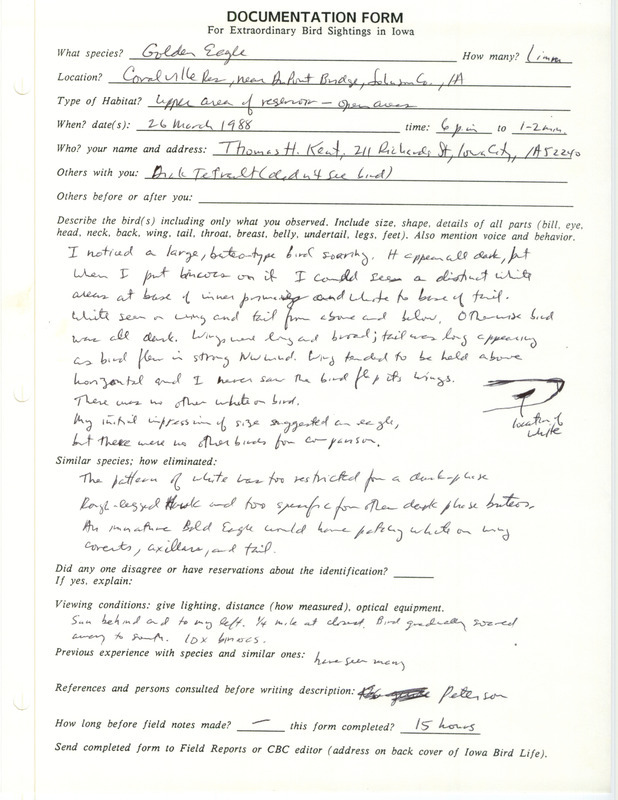 DOCUMENTATION FORM
For Extraordinary Bird Sightings in Iowa
What species? Golden Eagle How many? 1 imm
Location? Coralville Res, near Bridge, Johnson Co., IA
Type of Habitat? Upper area of reservoir - open areas
When? date(s): 26 March 1988 time: 6 pm to 1-2 min.
Who? your name and address: Thomas H. Kent, 211 Richards St, Iowa City, IA 52240
Others with you: Dick Tetrault (did not see bird)
Others before or after you:
Describe the bird(s) including only what you observed. Include size, shape, details of all parts (bill, eye,
head, neck, back, wing, tail, throat, breast, belly, undertail, legs, feet). Also mention voice and behavior.
I noticed a large, buteo type bird soaring. It appear all dark, but
when I put binocs on it I could see a distinct white
areas at base of inner primaries and white to base of tail.
White seen on wing and tail from above and below. Otherwise bird
was all dark. Wings were long and broad; tail was long appearing
as bird flew in strong NW wind. Wing tended to be held above
horizontal and I never saw the bird flap its wings.
There was no other white on bird.
My initial impression of size suggested an eagle,
but there were no other birds for comparison.
location of
white
Similar species; how eliminated:
The pattern of white was too restricted for a dark phase
Rough-legged Hawk and too specific for other dark phase buteos.
An immature Bald Eagle would have patchy white on wing
coverts, axillars, and tail.
Did any one disagree or have reservations about the identification?
If yes, explain:
Viewing conditions: give lighting, distance (how measured), optical equipment.
Sun behind and to my left. 1/4 mile at closest. Bird gradually soared
away to south. 10x binocs.
Previous experience with species and similar ones: have seen many
References and persons consulted before writing description: Peterson
How long before field notes made? — this form completed? 15 hours
Send completed form to Field Reports or CBC editor (address on back cover of Iowa Bird Life).